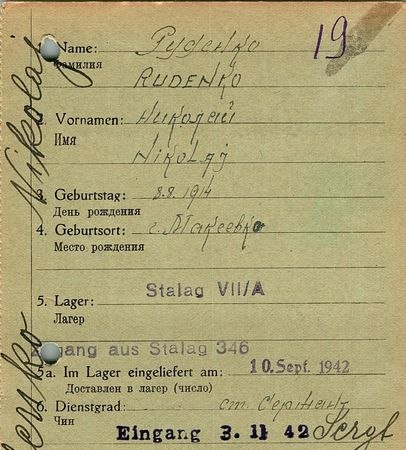 19
1. Name: Руденко
Фамилия
RUDENKO
2. Vornamen: Николай
Имя
Nikolaj
3. Geburtstag: 8.8.1914
День рождения
4. Geburtsort: г. Макеевка
Место рождения
5. Lager: Stalag VII/A
Лагер
Zugang aus Stalag 346
5a. Im Lager eingeliefert am: 10. Sept. 1942
Доставлен в лагер (число)
6. Dienstgrad: ст. Сержант
Чин
Eingang 3. 11 42 Sergt
Nikolaj
enko